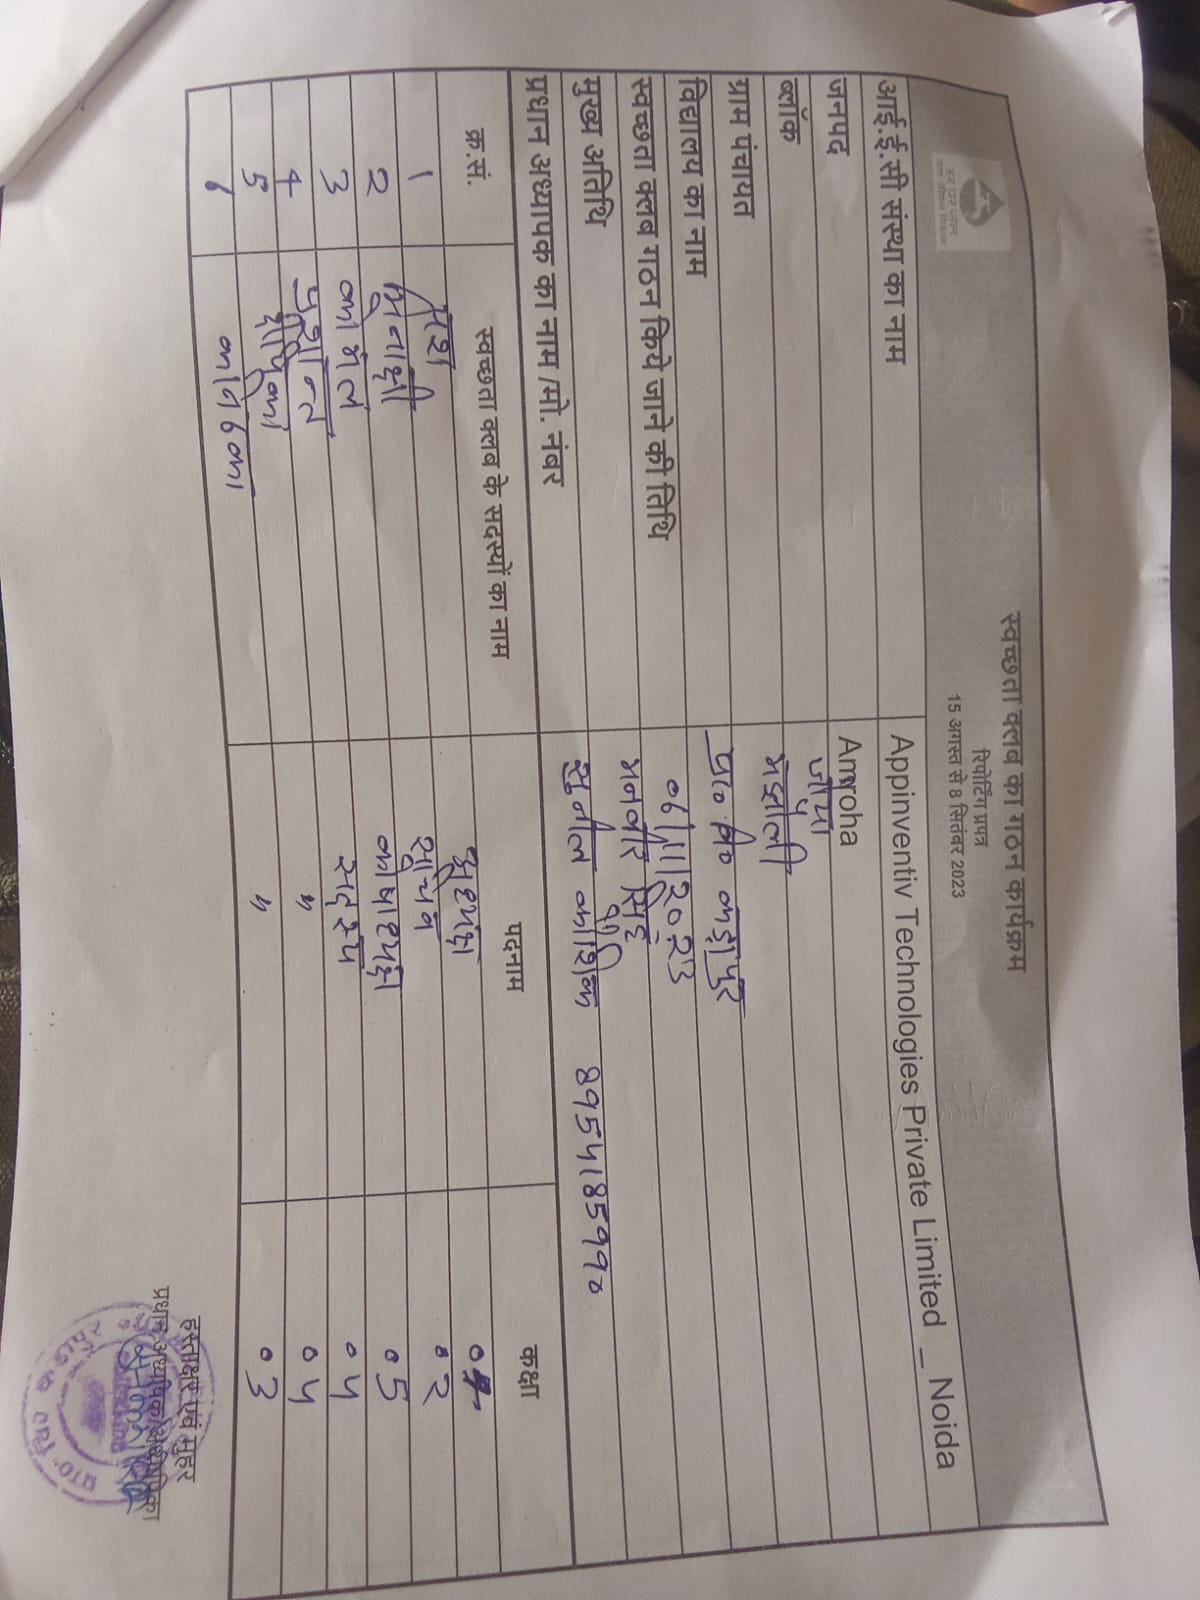 हर घर जल
स्वच्छता क्लब का गठन कार्यक्रम
रिपोर्टिंग प्रपत्र
15 अगस्त से 8 सितंबर 2023
आई.ई.सी संस्था का नाम Appinventiv Technologies Private Limited _ Noida
जनपद Amroha
ब्लॉक जोया
ग्राम पंचायत मझोली
विद्यालय का नाम प्रा० वि०
स्वच्छता क्लब गठन किये जाने की तिथि 06/11/2023
मुख्य अतिथि मनवीर सिंह
प्रधान अध्यापक का नाम /मो. नंबर सुनील कौशिक 8954185990
क्र.सं. स्वच्छता क्लब के सदस्यों का नाम पदनाम कक्षा
1
2 मीनाक्षी 02
3 कोमल कोषाध्यक्ष 05
4 प्रशान्त सदस्य 04
5 " 04
6 कनिष्का " 03
हस्ताक्षर एवं मुहर
प्रधान अध्यापक/अध्यापिका